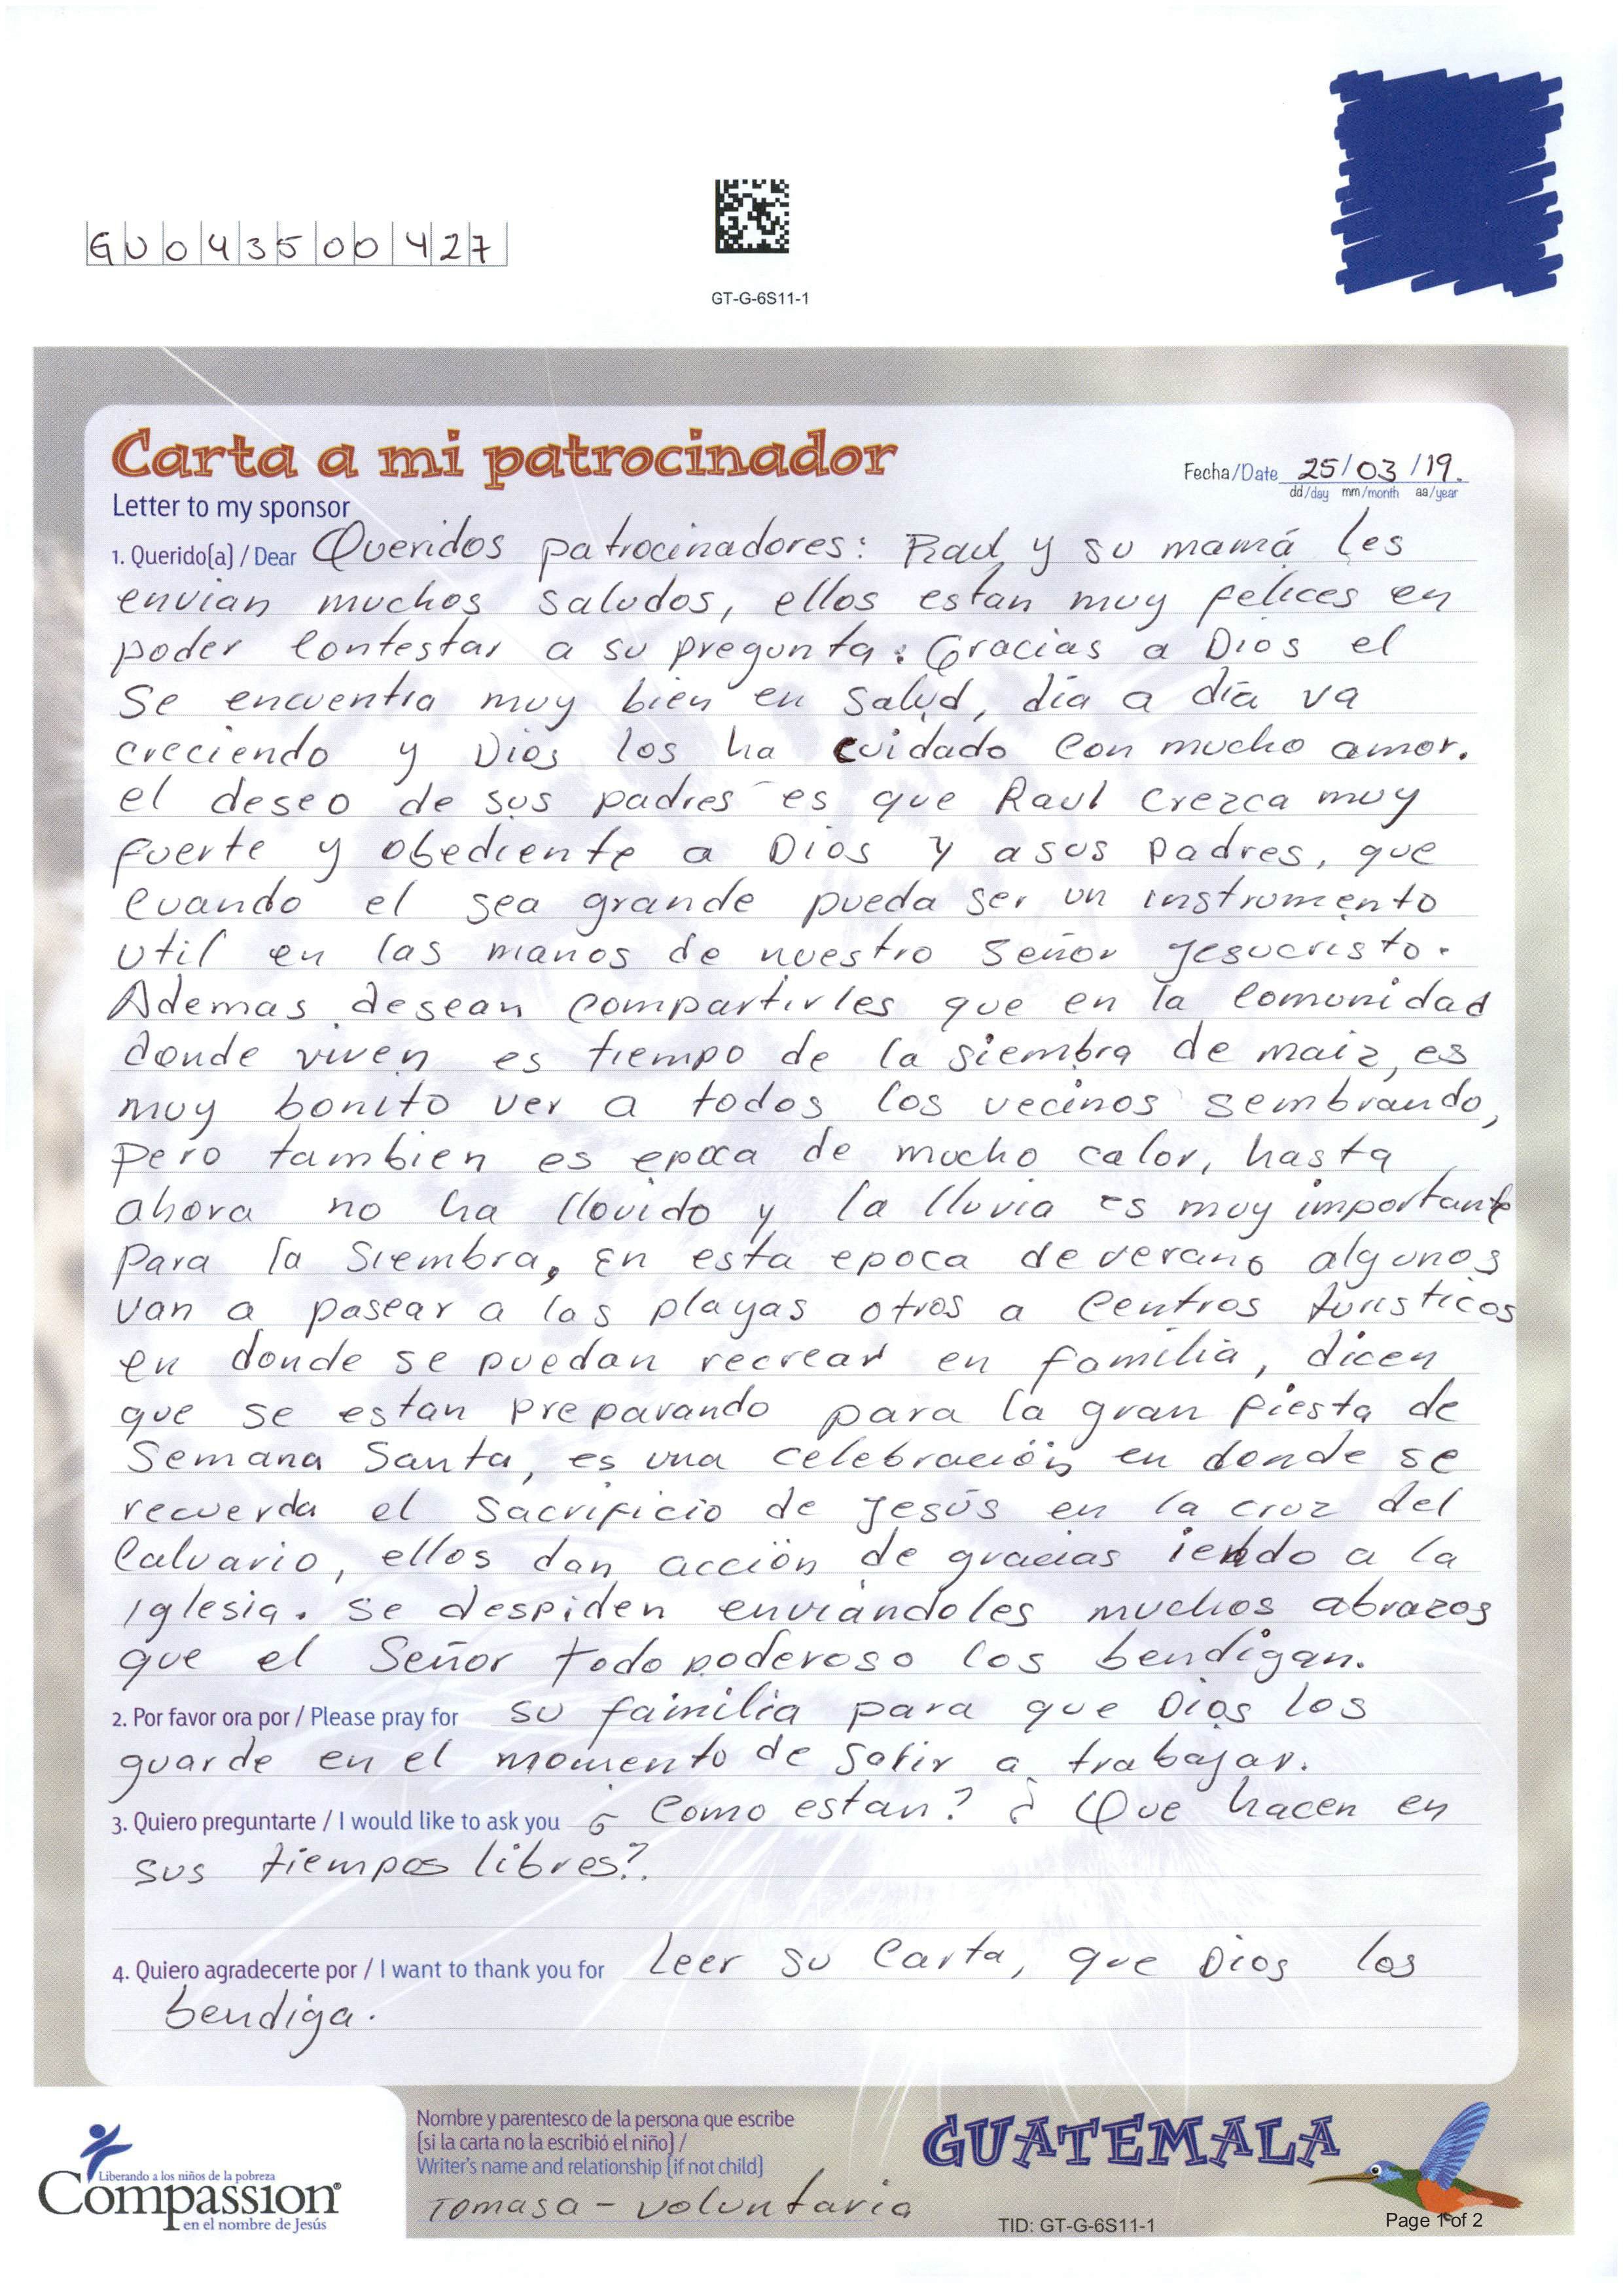 GU043500427
GT-G-6S11-1
Carta a mi patrocinador
Letter to my sponsor
Fecha/Date 25/03/19.
dd/day mm/month aa/year
1. Querido(a) / Dear Queridos patrocinadores: Raul y su mamá les
envian muchos saludos, ellos estan muy felices en
poder contestar a su pregunta: Gracias a Dios el
se encuentra muy bien en salud, día a día va
creciendo y Dios los ha cuidado con mucho amor.
el deseo de sus padres es que Raul crezca muy
fuerte y obediente a Dios y asus padres, que
cuando el sea grande pueda ser un instrumento
util en las manos de nuestro Señor Jesucristo.
Ademas desean compartirles que en la comunidad
donde viven es tiempo de la siembra de maiz, es
muy bonito ver a todos los vecinos sembrando,
pero tambien es epoca de mucho calor, hasta
ahora no ha llovido y la lluvia es muy importante
para la siembra, En esta epoca de verano algunos
van a pasear a las playas otros a centros turisticos
en donde se puedan recrear en familia, dicen
que se estan preparando para la gran fiesta de
Semana Santa, es una celebración en donde se
recuerda el sacrificio de Jesús en la cruz del
Calvario, ellos dan acción de gracias iendo a la
Iglesia. se despiden enviándoles muchos abrazos
que el Señor todo poderoso los bendigan.
2. Por favor ora por / Please pray for su familia para que Dios los
guarde en el momento de salir a trabajar.
3. Quiero preguntarte / I would like to ask you ¿Como estan? ¿Que hacen en
sus tiempos libres?.
4. Quiero agradecerte por / I want to thank you for Leer su carta, que Dios los
bendiga.
Liberando a los niños de la pobreza
Compassion®
en el nombre de Jesús
Nombre y parentesco de la persona que escribe
(si la carta no la escribió el niño) /
Writer's name and relationship (if not child)
Tomasa - voluntaria
GUATEMALA
TID: GT-G-6S11-1
Page 1 of 2